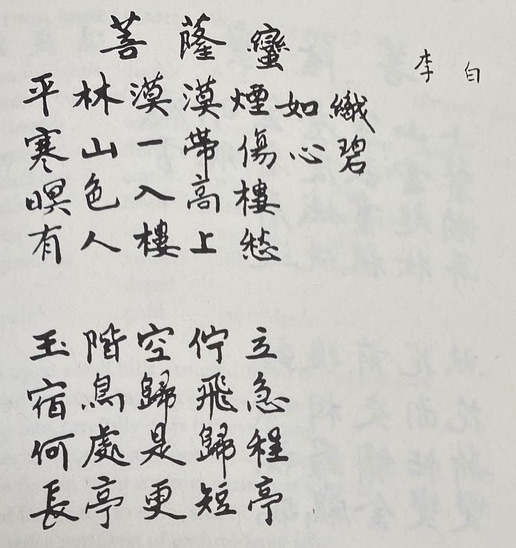 菩薩蠻
李白
平林漠漠煙如織
寒山一帶傷心碧
暝色入高樓
有人樓上愁
玉階空佇立
宿鳥歸飛急
何處是歸程
長亭更短亭